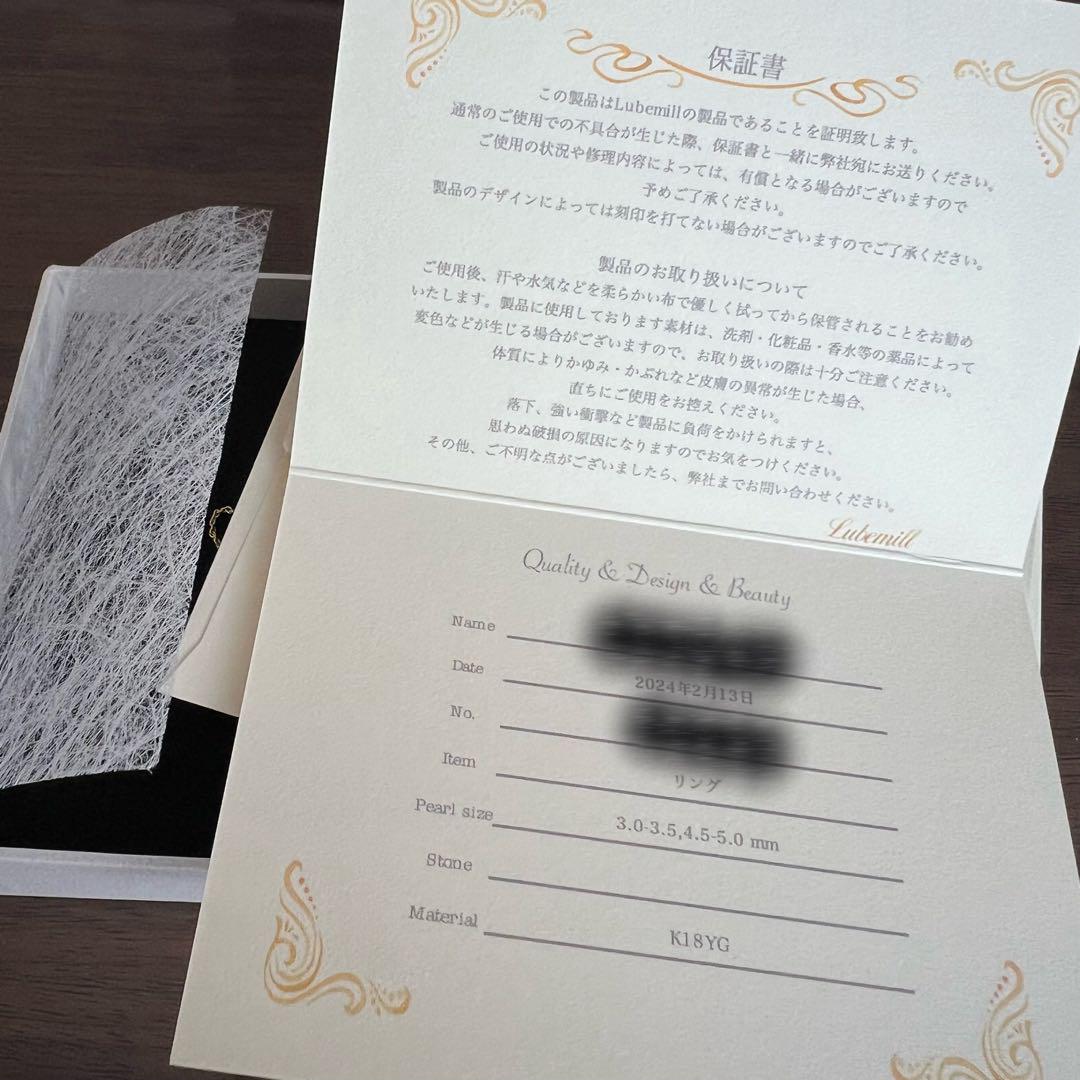 保証書
この製品はLubemillの製品であることを証明致します。
通常のご使用での不具合が生じた際、保証書と一緒に弊社宛にお送りください。
ご使用の状況や修理内容によっては、有償となる場合がございますので
予めご了承ください。
製品のデザインによっては刻印を打てない場合がございますのでご了承ください。
製品のお取り扱いについて
ご使用後、汗や水気などを柔らかい布で優しく拭ってから保管されることをお勧め
いたします。製品に使用しております素材は、洗剤・化粧品・香水等の薬品によって
変色などが生じる場合がございますので、お取り扱いの際は十分ご注意ください。
体質によりかゆみ・かぶれなど皮膚の異常が生じた場合、
直ちにご使用をお控えください。
落下、強い衝撃など製品に負荷をかけられますと、
思わぬ破損の原因になりますのでお気をつけください。
その他、ご不明な点がございましたら、弊社までお問い合わせください。
Lubemill
Quality & Design & Beauty
Name
Date 2024年2月13日
No.
Item リング
Pearl size 3.0-3.5,4.5-5.0 mm
Stone
Material K18YG